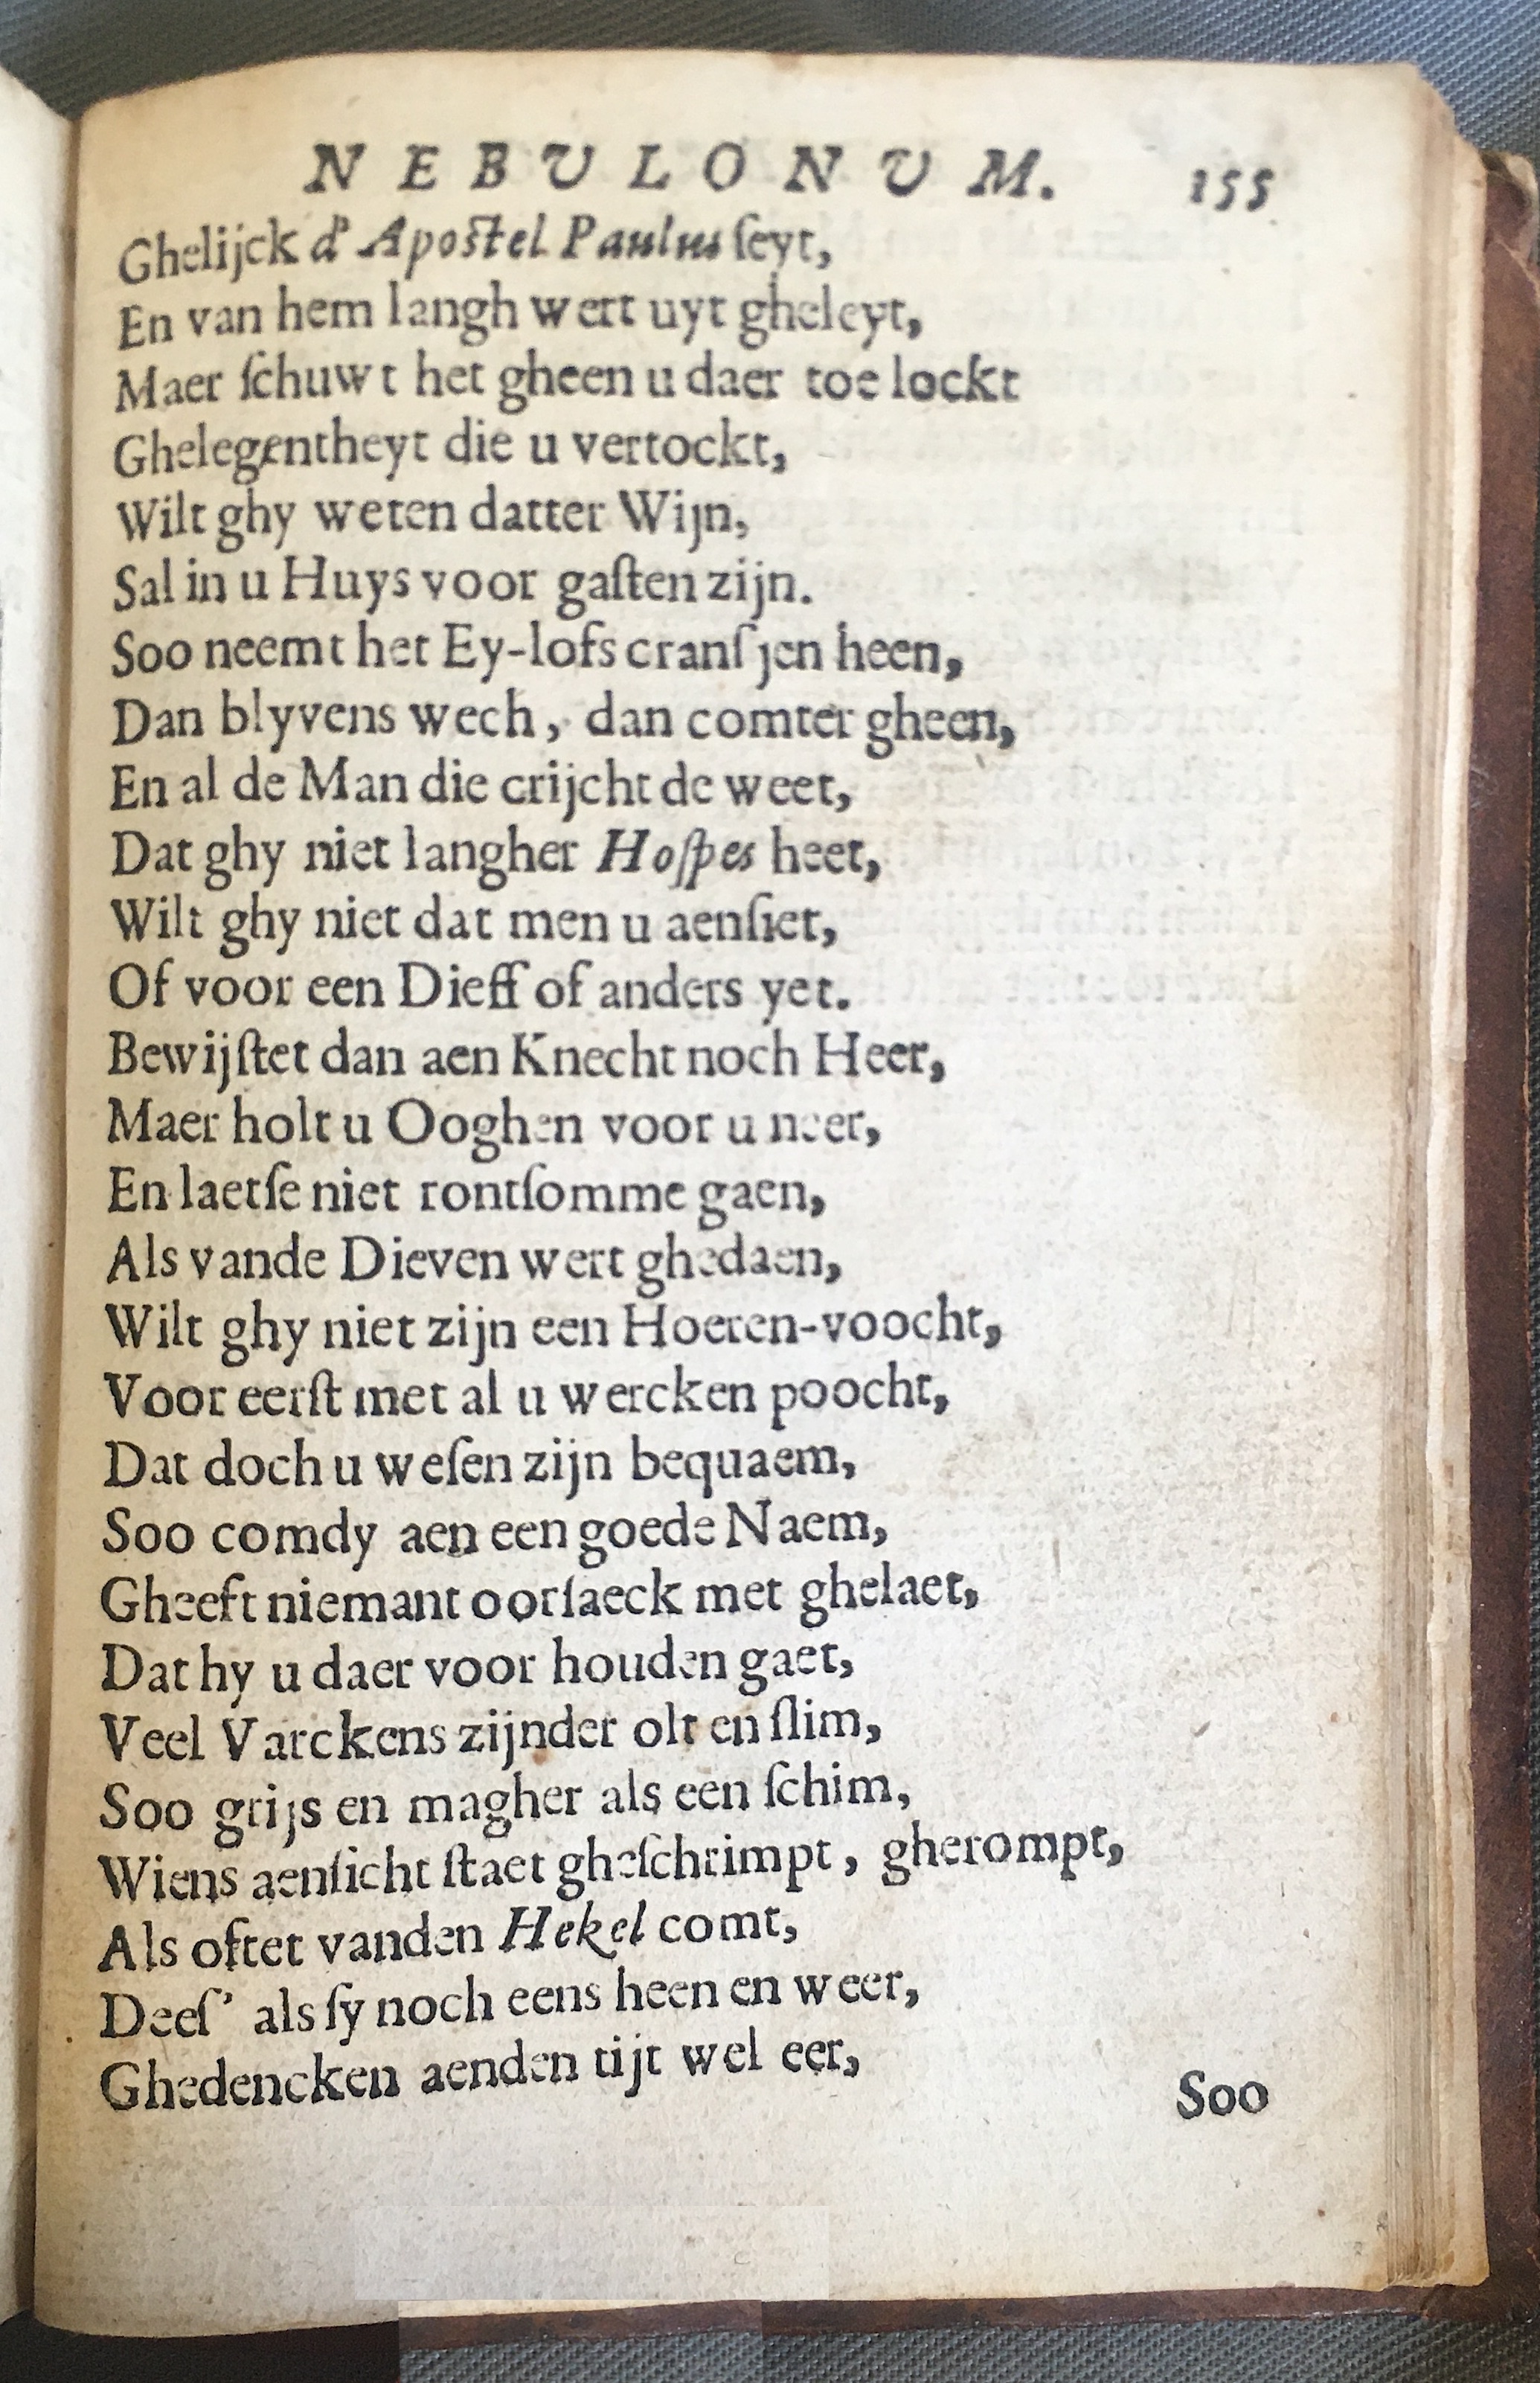 NEBULONUM. 155
Ghelijck d' Apoſtel Paulus ſeyt,
En van hem langh wert uyt gheleyt,
Maer ſchuwt het gheen u daer toe lockt
Ghelegentheyt die u vertockt,
Wilt ghy weten datter Wijn,
Sal in u Huys voor gaſten zijn.
Soo neemt het Ey-lofs cranſjen heen,
Dan blyvens wech, dan comter gheen,
En al de Man die crijcht de weet,
Dat ghy niet langher Hoſpes heet,
Wilt ghy niet dat men u aenſiet,
Of voor een Dieff of anders yet.
Bewijſtet dan aen Knecht noch Heer,
Maer holt u Ooghen voor u neer,
En laetſe niet rontſomme gaen,
Als vande Dieven wert ghedaen,
Wilt ghy niet zijn een Hoeren-voocht,
Voor eerſt met al u wercken poocht,
Dat doch u weſen zijn bequaem,
Soo comdy aen een goede Naem,
Gheeft niemant oorſaeck met ghelaet,
Dat hy u daer voor houden gaet,
Veel Varckens zijnder olt en ſlim,
Soo grijs en magher als een ſchim,
Wiens aenſicht ſtaet gheſchrimpt, gherompt,
Als oftet vanden Hekel comt,
Deeſ' als ſy noch eens heen en weer,
Ghedencken aenden tijt wel eer,
Soo